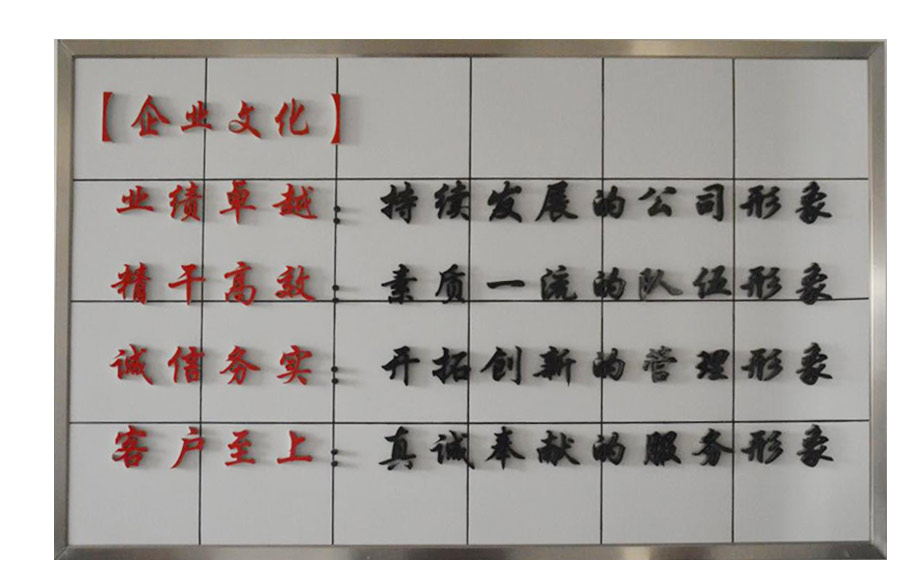 【企业文化】
业绩卓越：持续发展的公司形象
精干高效：素质一流的队伍形象
诚信务实：开拓创新的管理形象
客户至上：真诚奉献的服务形象